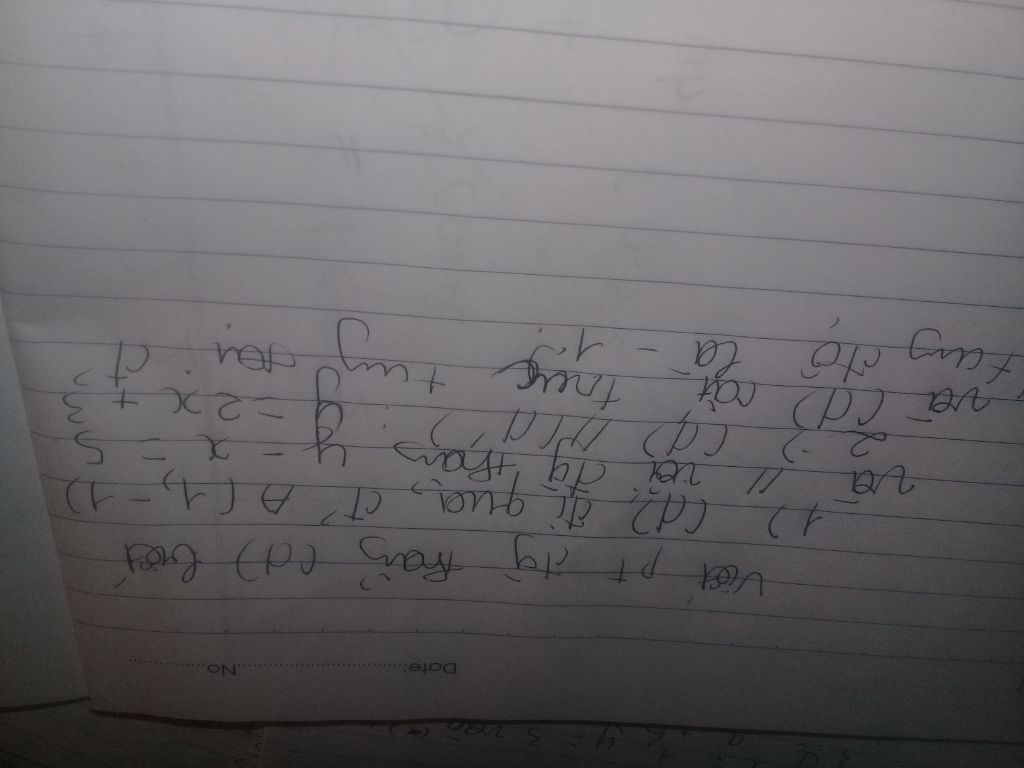 Date: No
Viết pt đg thẳng (d) biết
1) (d) đi qua đ' A(1,-1)
và // với đg thẳng y - x = 5
2) (d) // (d'): y = 2x + 3
và (d) cắt trục tung tại đ'
tung độ là -1.